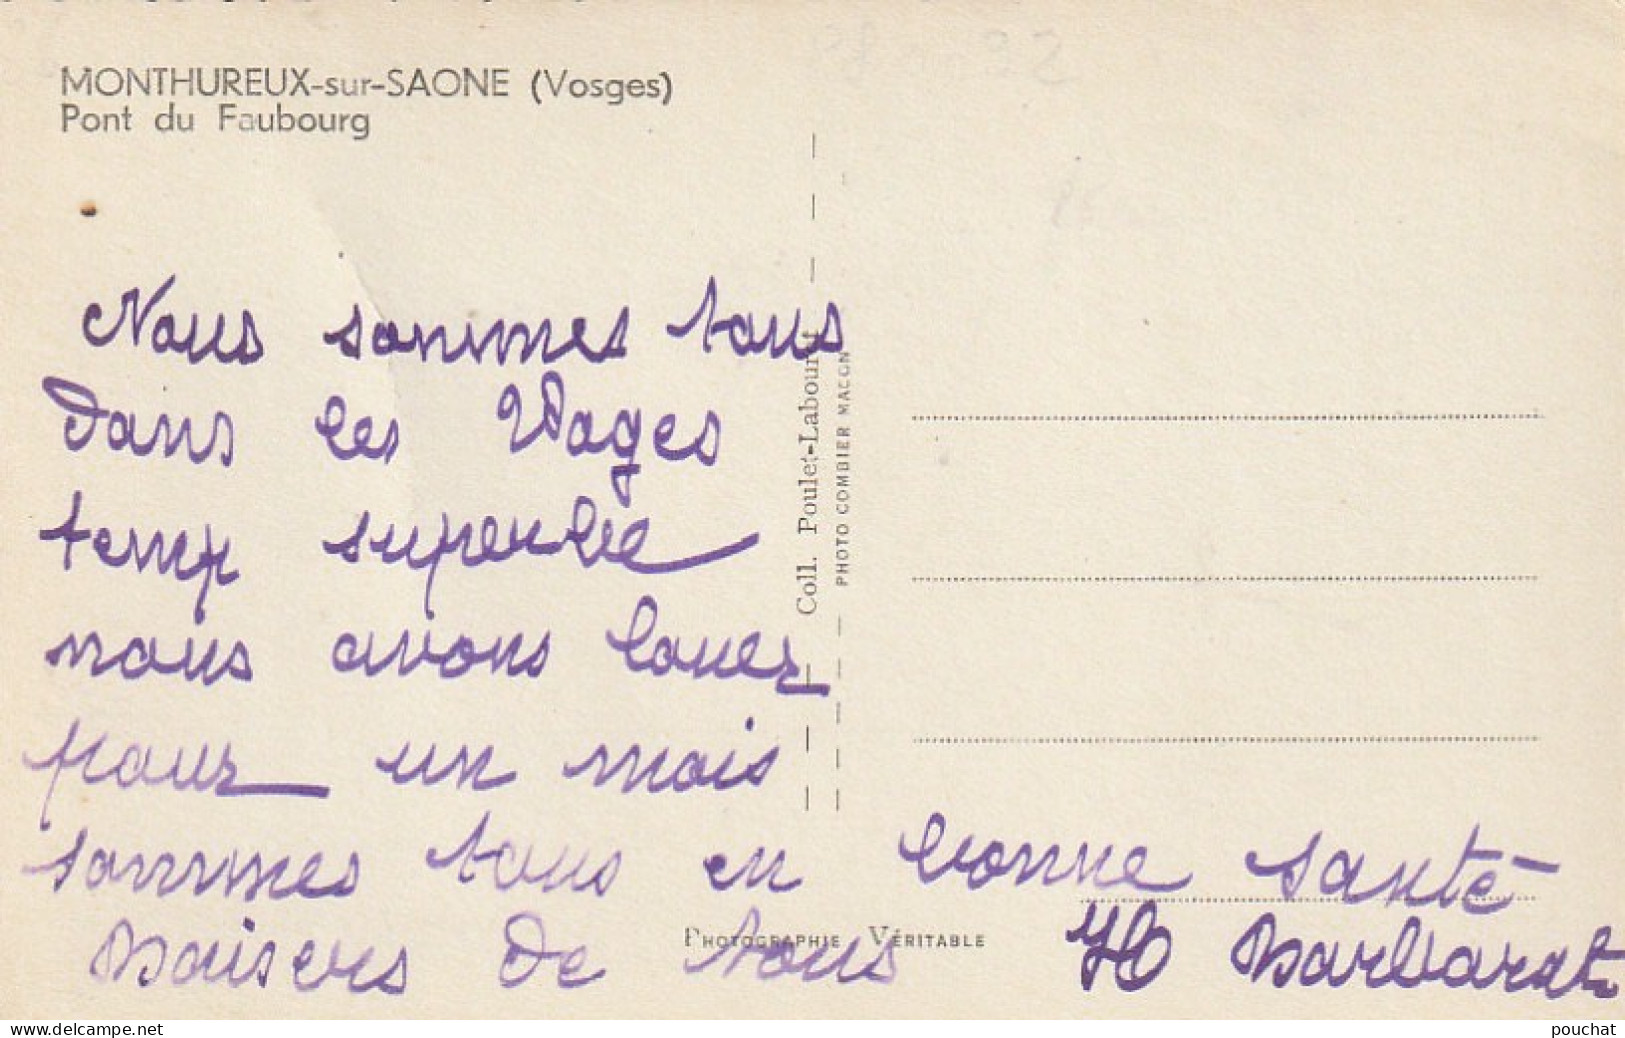 MONTHUREUX-sur-SAONE (Vosges)
Pont du Faubourg
Nous sommes tous
dans les Vosges
temp superbe
nous avons louer
pour un mois
sommes tous en bonne santé
Baisers de tous H Barbarat
Coll. Poulet-Labour
PHOTO COMBIER MACON
PHOTOGRAPHIE VÉRITABLE
www.delcampe.net
pouchat